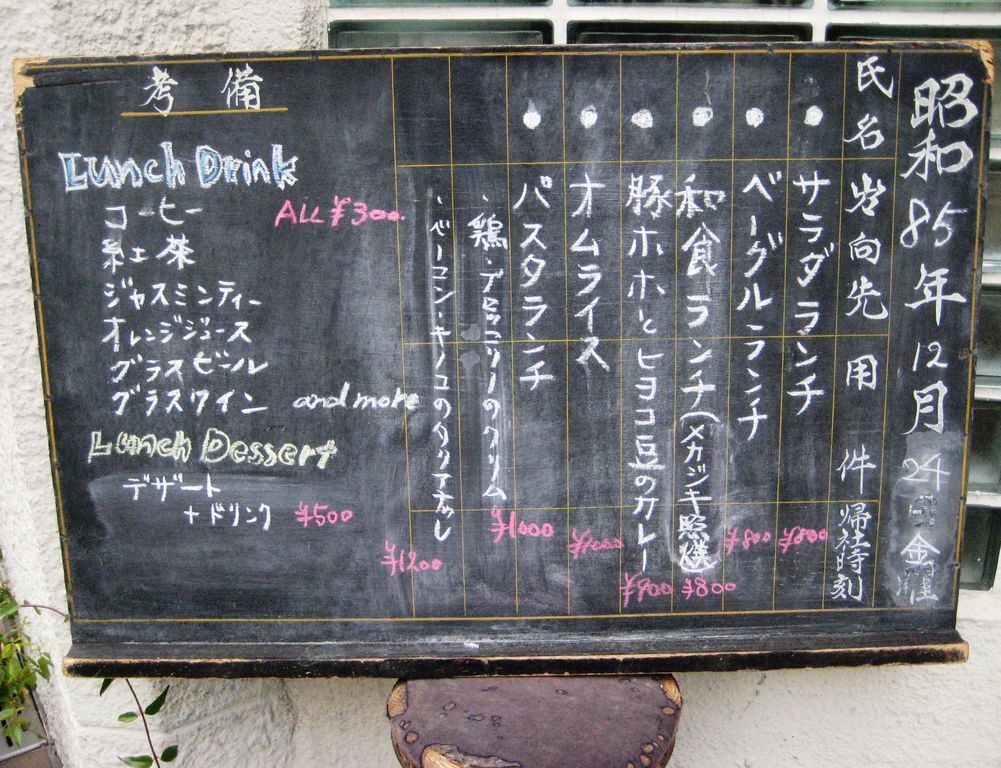 昭和85年12月24日金曜
氏名 出向先 用件 帰社時刻
サラダランチ ¥800
ベーグルランチ ¥800
和食ランチ(メカジキ照焼) ¥800
豚ホホとヒヨコ豆のカレー ¥900
オムライス ¥1000
パスタランチ
・鶏・ブロッコリーのクリーム ¥1000
・ベーコン・キノコのタリアテッレ ¥1200
備考
Lunch Drink
コーヒー ALL ¥300
紅茶
ジャスミンティー
オレンジジュース
グラスビール
グラスワイン and more
Lunch Dessert
デザート
+ドリンク ¥500